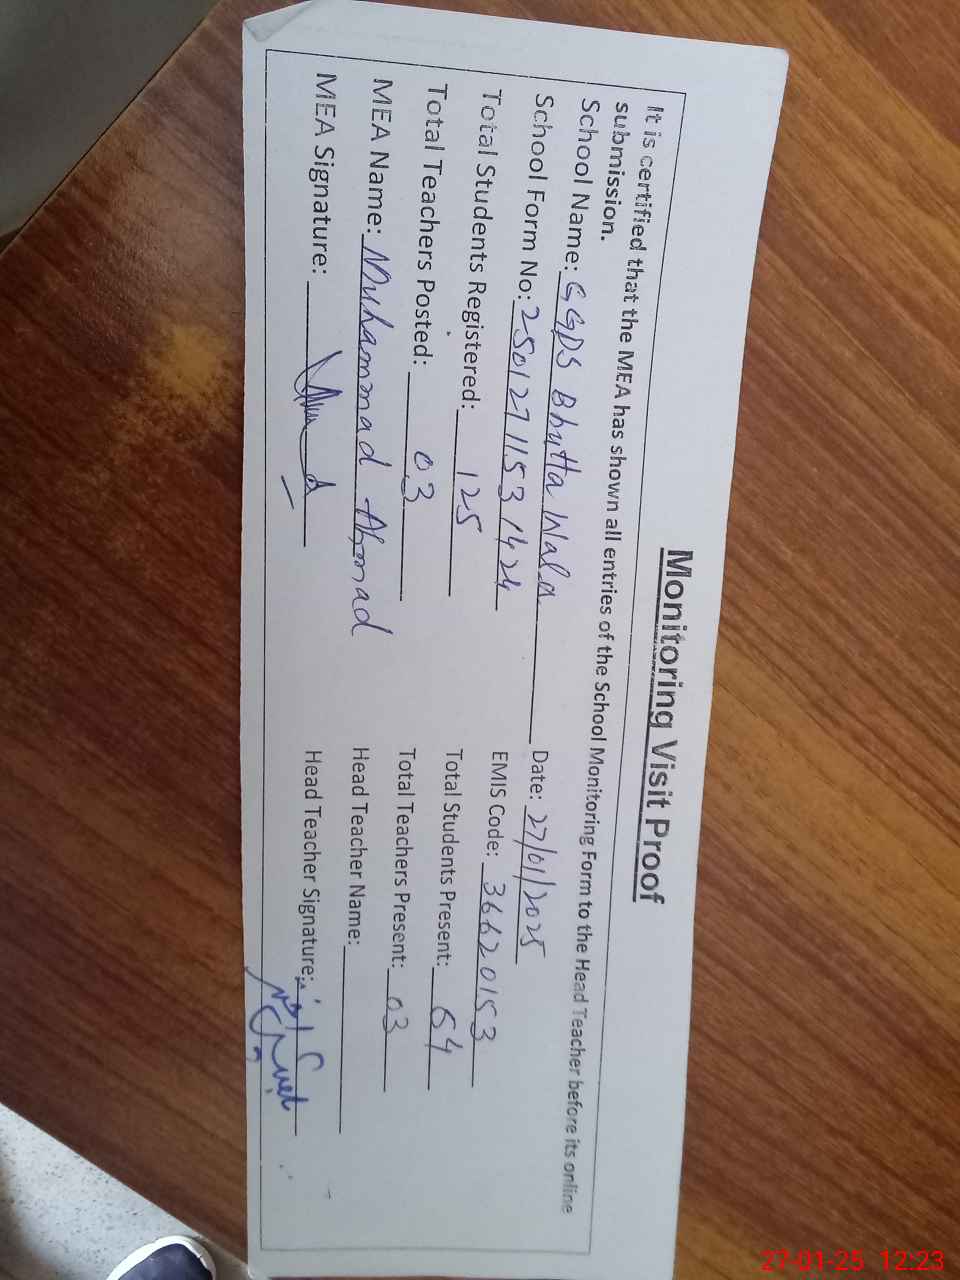 Monitoring Visit Proof
It is certified that the MEA has shown all entries of the School Monitoring Form to the Head Teacher before its online
submission.
School Name: GGPS Bhutta Wala Date: 27/01/2025
School Form No: 25012711531424 EMIS Code: 36620153
Total Students Registered: 125 Total Students Present: 64
Total Teachers Posted: 03 Total Teachers Present: 03
MEA Name: Muhammad Ahmad Head Teacher Name:
MEA Signature: Head Teacher Signature:
27-01-25 12:23